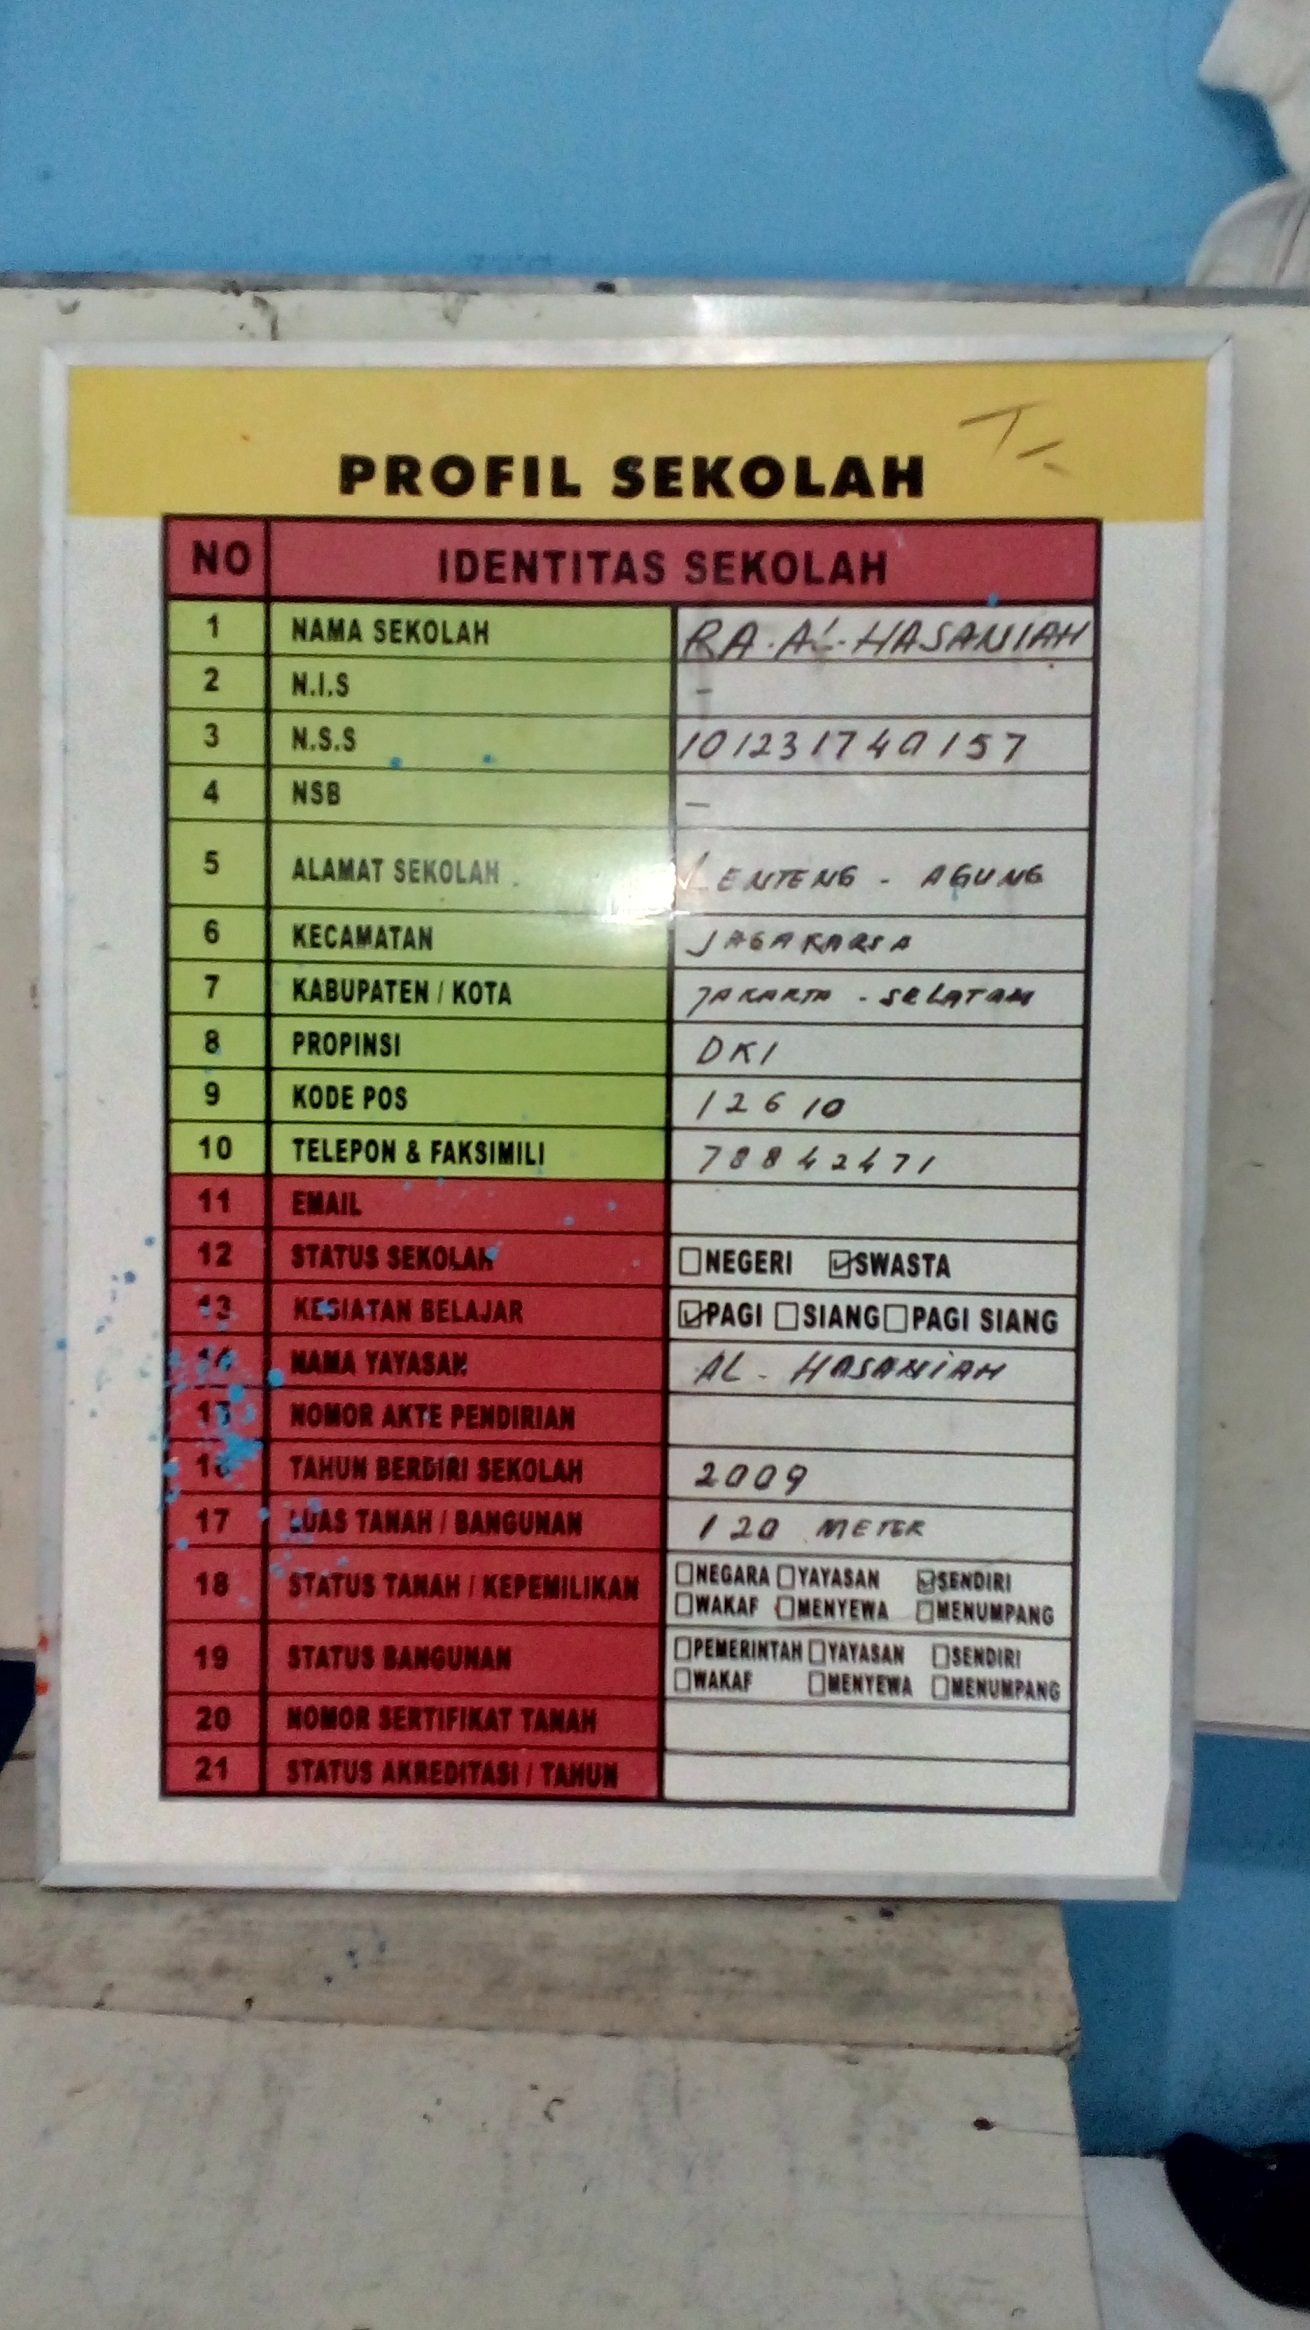 PROFIL SEKOLAH
NO IDENTITAS SEKOLAH
1 NAMA SEKOLAH RA. AL-HASANIAH
2 N.I.S -
3 N.S.S 101231740157
4 NSB -
5 ALAMAT SEKOLAH LENTENG - AGUNG
6 KECAMATAN JAGAKARSA
7 KABUPATEN / KOTA JAKARTA - SELATAN
8 PROPINSI DKI
9 KODE POS 12610
10 TELEPON & FAKSIMILI 78842471
11 EMAIL
12 STATUS SEKOLAH ☐NEGERI ☑SWASTA
13 KEGIATAN BELAJAR ☑PAGI ☐SIANG ☐PAGI SIANG
14 NAMA YAYASAN AL - HASANIAH
15 NOMOR AKTE PENDIRIAN
16 TAHUN BERDIRI SEKOLAH 2009
17 LUAS TANAH / BANGUNAN 120 METER
18 STATUS TANAH / KEPEMILIKAN ☐NEGARA ☐YAYASAN ☑SENDIRI
☐WAKAF ☐MENYEWA ☐MENUMPANG
19 STATUS BANGUNAN ☐PEMERINTAH ☐YAYASAN ☐SENDIRI
☐WAKAF ☐MENYEWA ☐MENUMPANG
20 NOMOR SERTIFIKAT TANAH
21 STATUS AKREDITASI / TAHUN